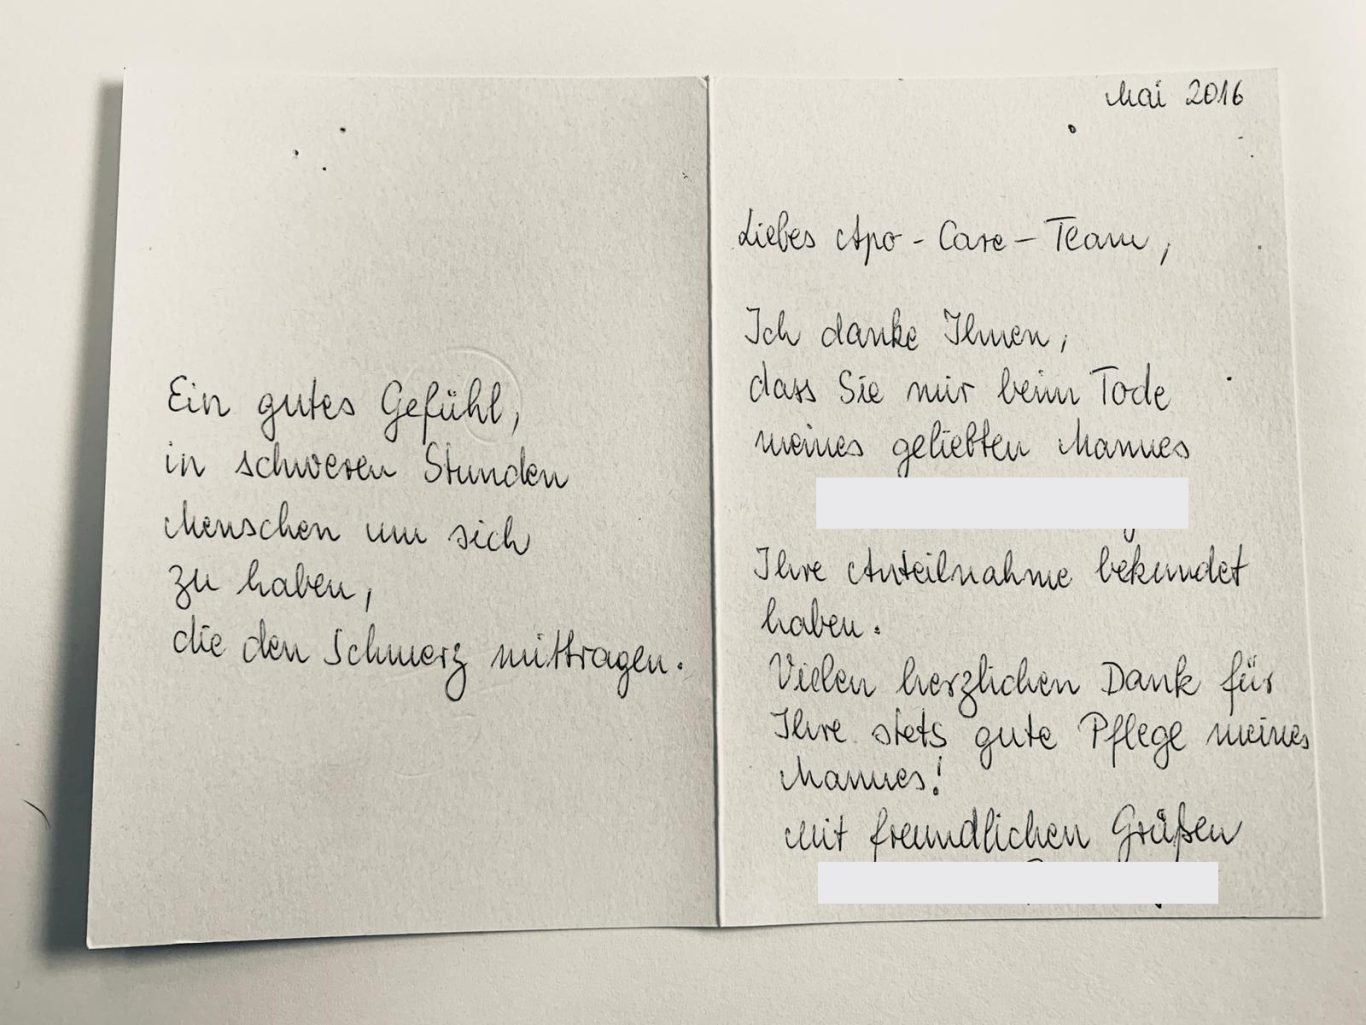 Ein gutes Gefühl,
in schweren Stunden
Menschen um sich
zu haben,
die den Schmerz mittragen.
Mai 2016
Liebes Apo - Care - Team,
Ich danke Ihnen,
dass Sie mir beim Tode
meines geliebten Mannes
Ihre Anteilnahme bekundet
haben.
Vielen herzlichen Dank für
Ihre stets gute Pflege meines
Mannes!
Mit freundlichen Grüßen